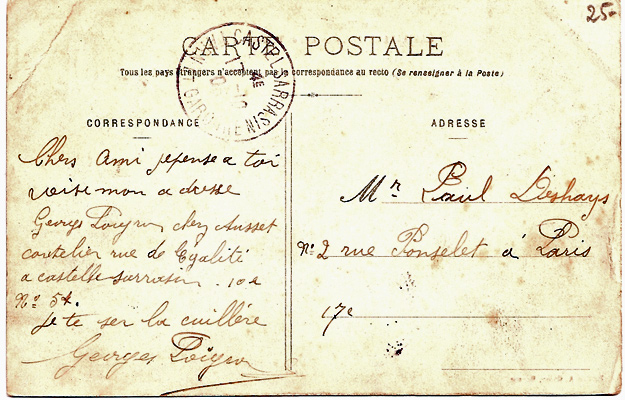 25-
CARTE POSTALE
Tous les pays étrangers n'acceptent pas la correspondance au recto (Se renseigner à la Poste)
CASTELSARRASIN
CORRESPONDANCE
ADRESSE
Chers Ami je pense a toi
voisi mon adresse
Georges chez Ausset
coutelier rue de Egalité
a castelle sarrasin
No 54.
je te ser la cuillère
Georges
Mr Paul Deshays
No 2 rue Ponselet á Paris
17e